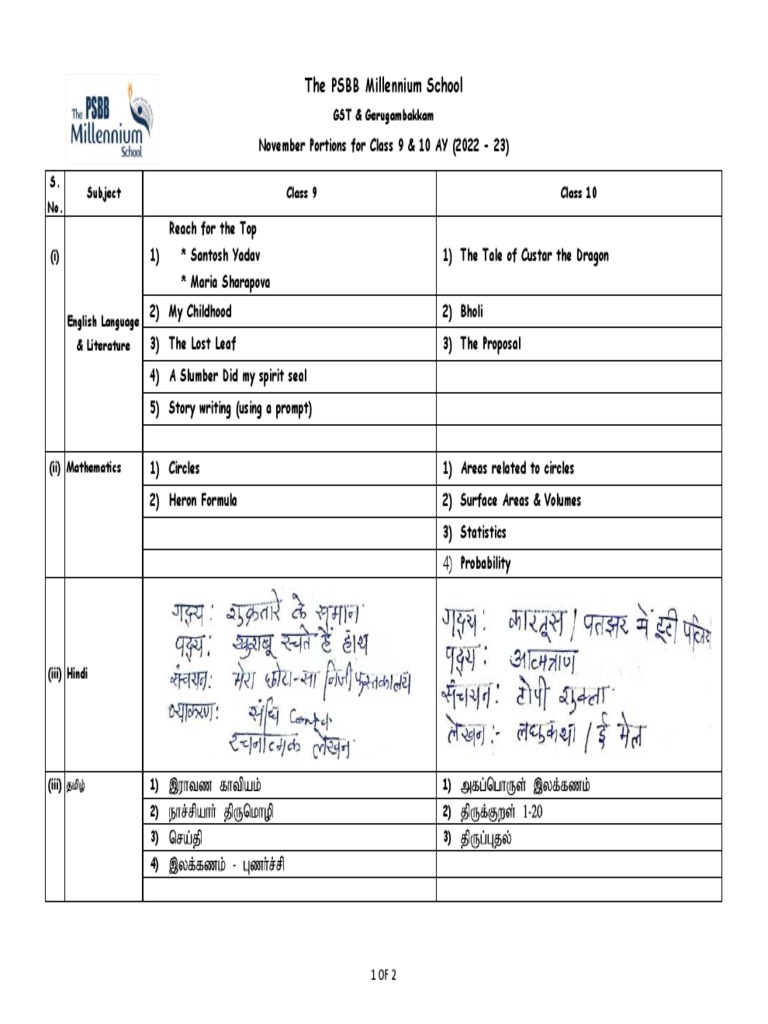 The PSBB Millennium School
The PSBB Millennium School
GST & Gerugambakkam
November Portions for Class 9 & 10 AY (2022 - 23)
S. No. Subject Class 9 Class 10
(i) English Language & Literature
1) Reach for the Top
* Santosh Yadav
* Maria Sharapova
1) The Tale of Custar the Dragon
2) My Childhood 2) Bholi
3) The Lost Leaf 3) The Proposal
4) A Slumber Did my spirit seal
5) Story writing (using a prompt)
(ii) Mathematics 1) Circles 1) Areas related to circles
2) Heron Formula 2) Surface Areas & Volumes
3) Statistics
4) Probability
(iii) Hindi
गद्य: शुक्रतारे के समान
पद्य: खुशबू रचते हैं हाथ
संचयन: मेरा छोटा-सा निजी पुस्तकालय
व्याकरण: संधि
रचनात्मक लेखन
गद्य: कारतूस / पतझर में टूटी पत्तियाँ
पद्य: आत्मत्राण
संचयन: टोपी शुक्ला
लेखन:- लघुकथा / ई मेल
(iii) தமிழ் 1) இராவண காவியம் 1) அகப்பொருள் இலக்கணம்
2) நாச்சியார் திருமொழி 2) திருக்குறள் 1-20
3) செய்தி 3) திருப்புதல்
4) இலக்கணம் - புணர்ச்சி
1 OF 2